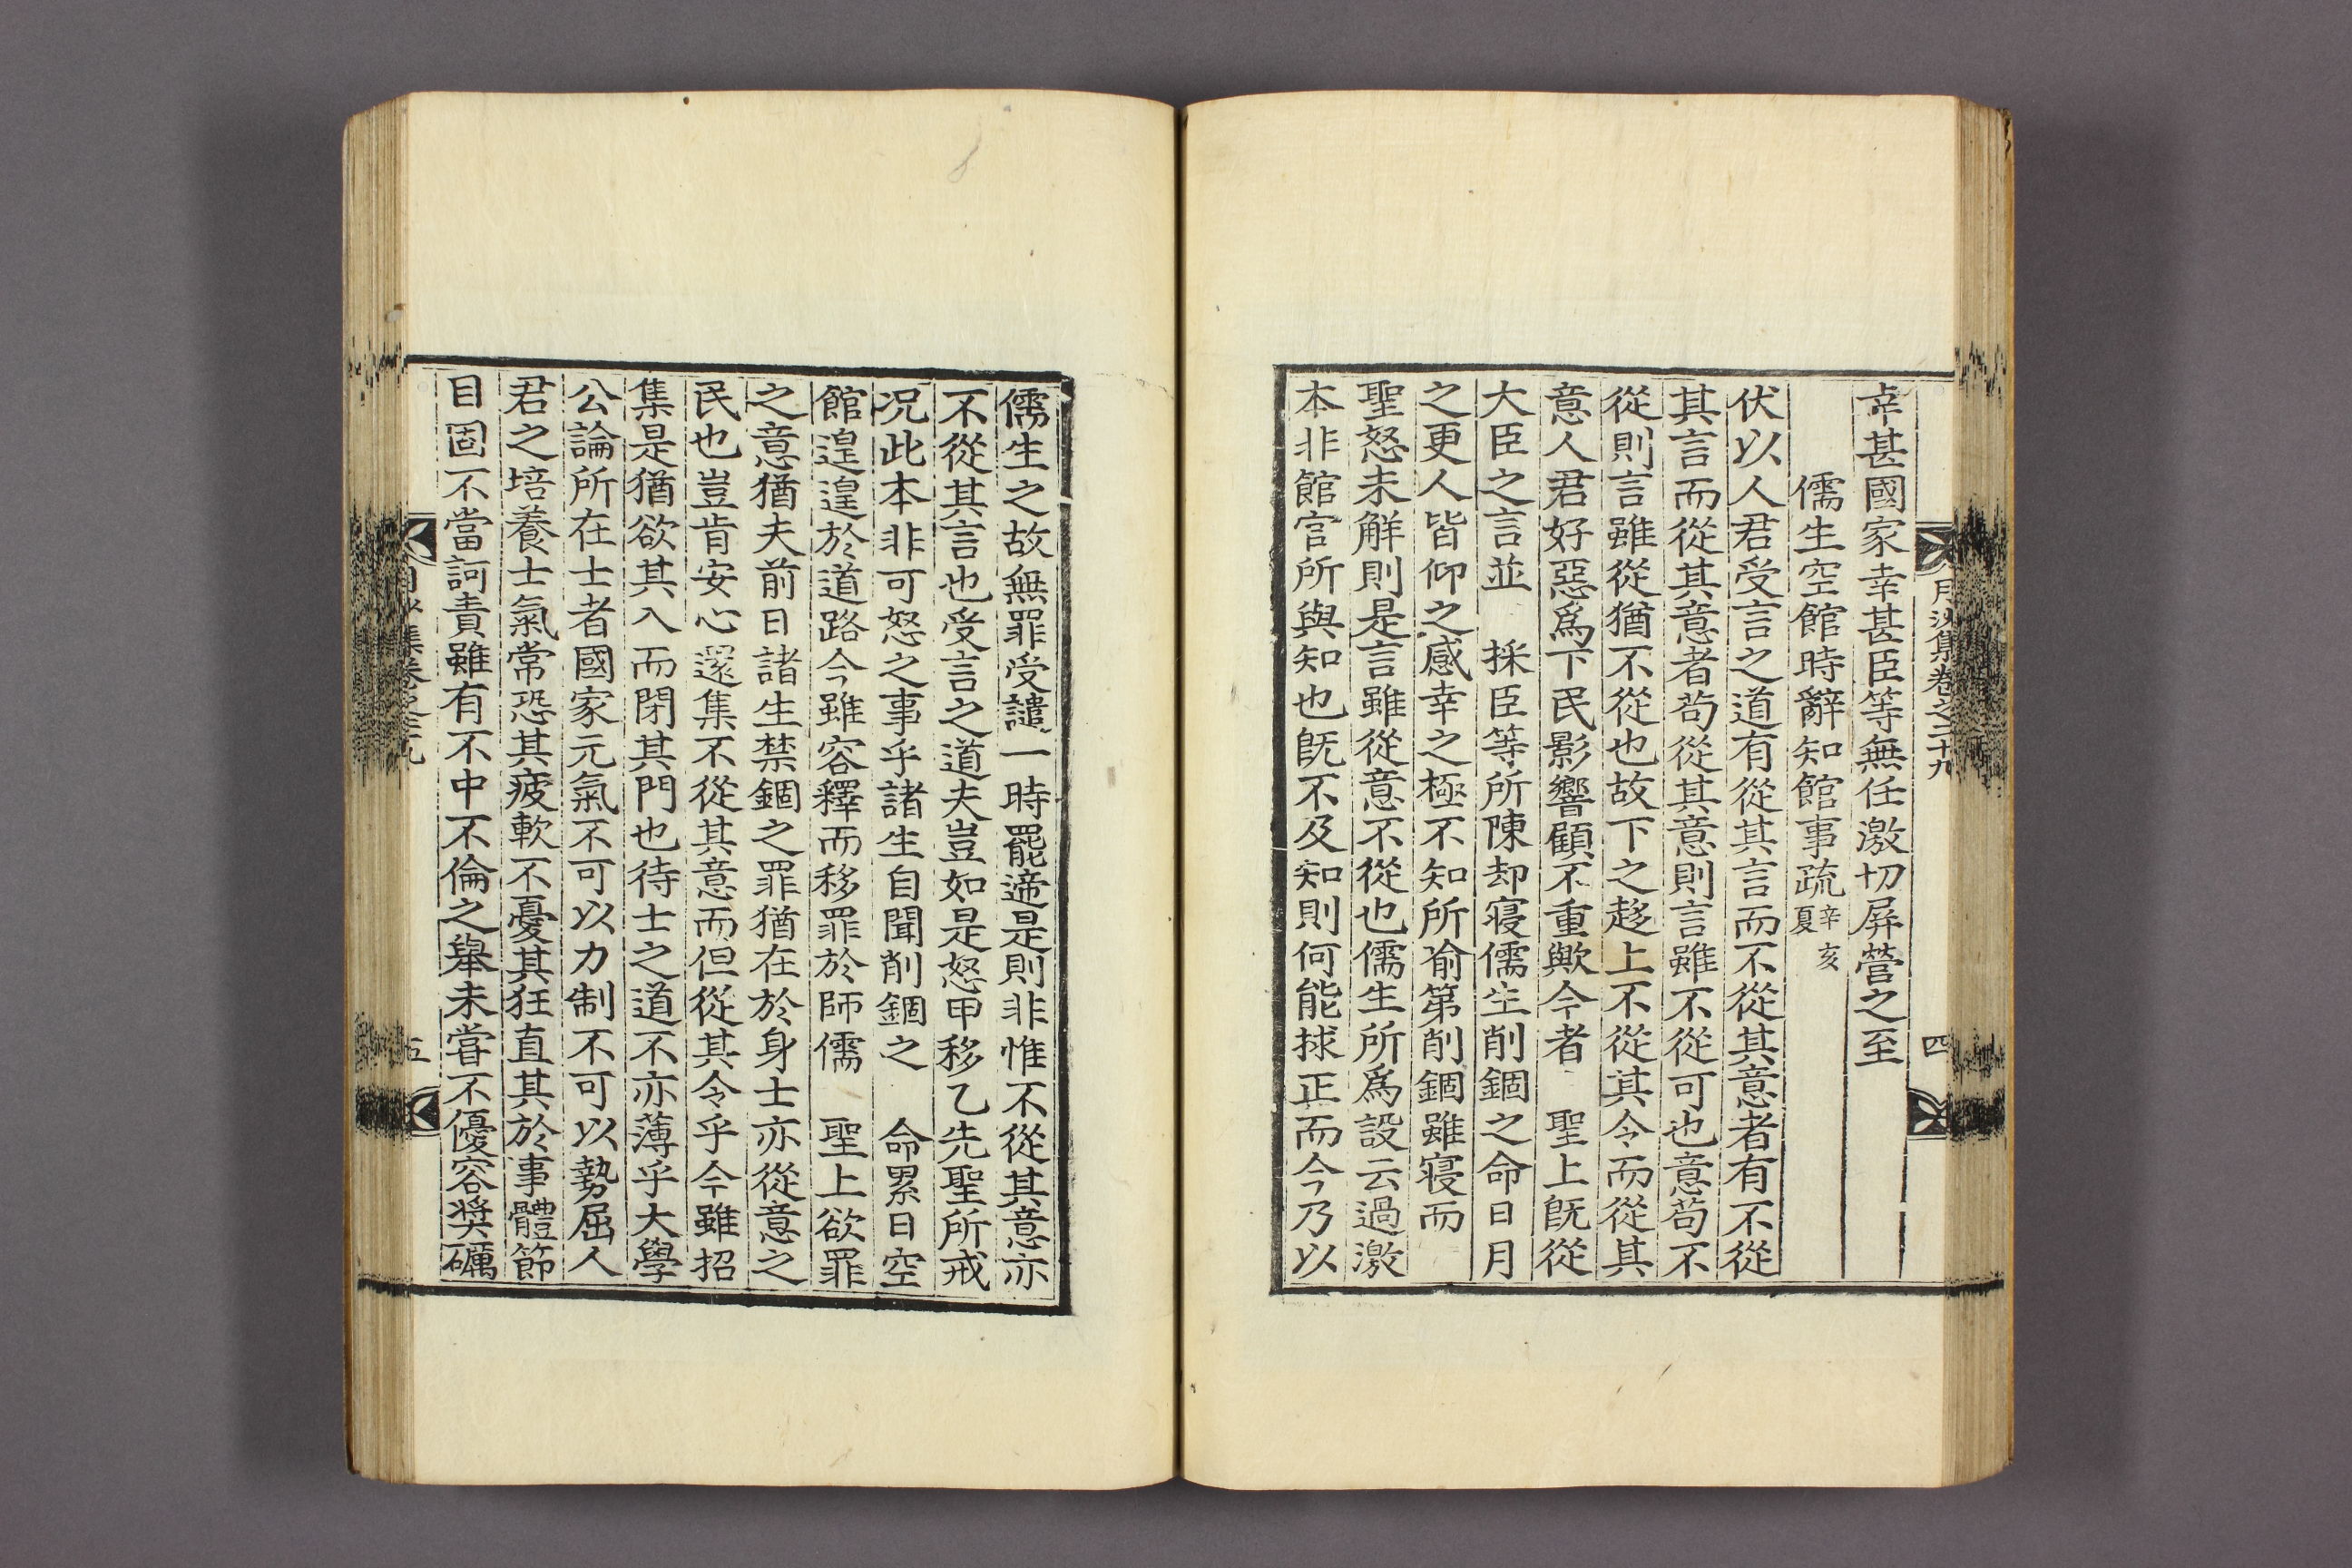 月沙集卷之二十九
四
幸甚國家幸甚臣等無任激切屛營之至
儒生空館時辭知館事疏辛亥夏
伏以人君受言之道有從其言而不從其意者有不從
其言而從其意者苟從其意則言雖不從可也意苟不
從則言雖從猶不從也故下之趍上不從其令而從其
意人君好惡爲下民影響顧不重歟今者 聖上旣從
大臣之言並 採臣等所陳却寢儒生削錮之命日月
之更人皆仰之感幸之極不知所喩第削錮雖寢而
聖怒未解則是言雖從意不從也儒生所爲設云過激
本非館官所與知也旣不及知則何能捄正而今乃以
儒生之故無罪受譴一時罷遞是則非惟不從其意亦
不從其言也受言之道夫豈如是怒甲移乙先聖所戒
况此本非可怒之事乎諸生自聞削錮之 命累日空
館遑遑於道路今雖容釋而移罪於師儒 聖上欲罪
之意猶夫前日諸生禁錮之罪猶在於身士亦從意之
民也豈肯安心還集不從其意而但從其令乎今雖招
集是猶欲其入而閉其門也待士之道不亦薄乎大學
公論所在士者國家元氣不可以力制不可以勢屈人
君之培養士氣常恐其疲軟不憂其狂直其於事體節
目固不當訶責雖有不中不倫之擧未嘗不優容奬礪
月沙集卷之二十九
五